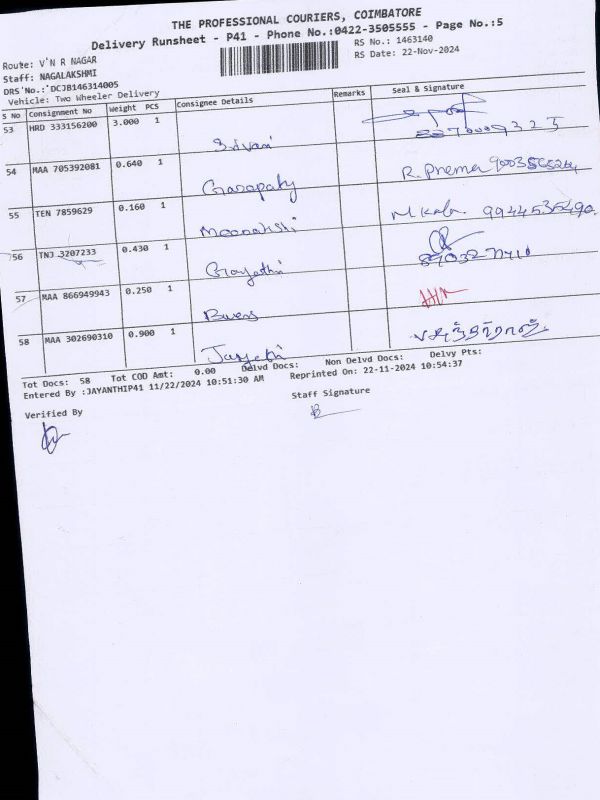 THE PROFESSIONAL COURIERS, COIMBATORE
Delivery Runsheet - P41 - Phone No.:0422-3505555 - Page No.:5
Route: V'N R NAGAR
RS No.: 1463140
Staff: NAGALAKSHMI
RS Date: 22-Nov-2024
DRS No.: DCJB146314005
Vehicle: Two Wheeler Delivery
S No Consignment No Weight PCS Consignee Details Remarks Seal & Signature
53 HRD 333156200 3.000 1
54 MAA 705392081 0.640 1 R. Prema
55 TEN 7859629 0.160 1 Meenakshi 9944535490
56 TNJ 3207233 0.430 1 Gayathri
57 MAA 866949943 0.250 1
58 MAA 302690310 0.900 1
Tot Docs: 58 Tot COD Amt: 0.00 Delvd Docs: Non Delvd Docs: Delvy Pts:
Entered By :JAYANTHIP41 11/22/2024 10:51:30 AM Reprinted On: 22-11-2024 10:54:37
Verified By Staff Signature